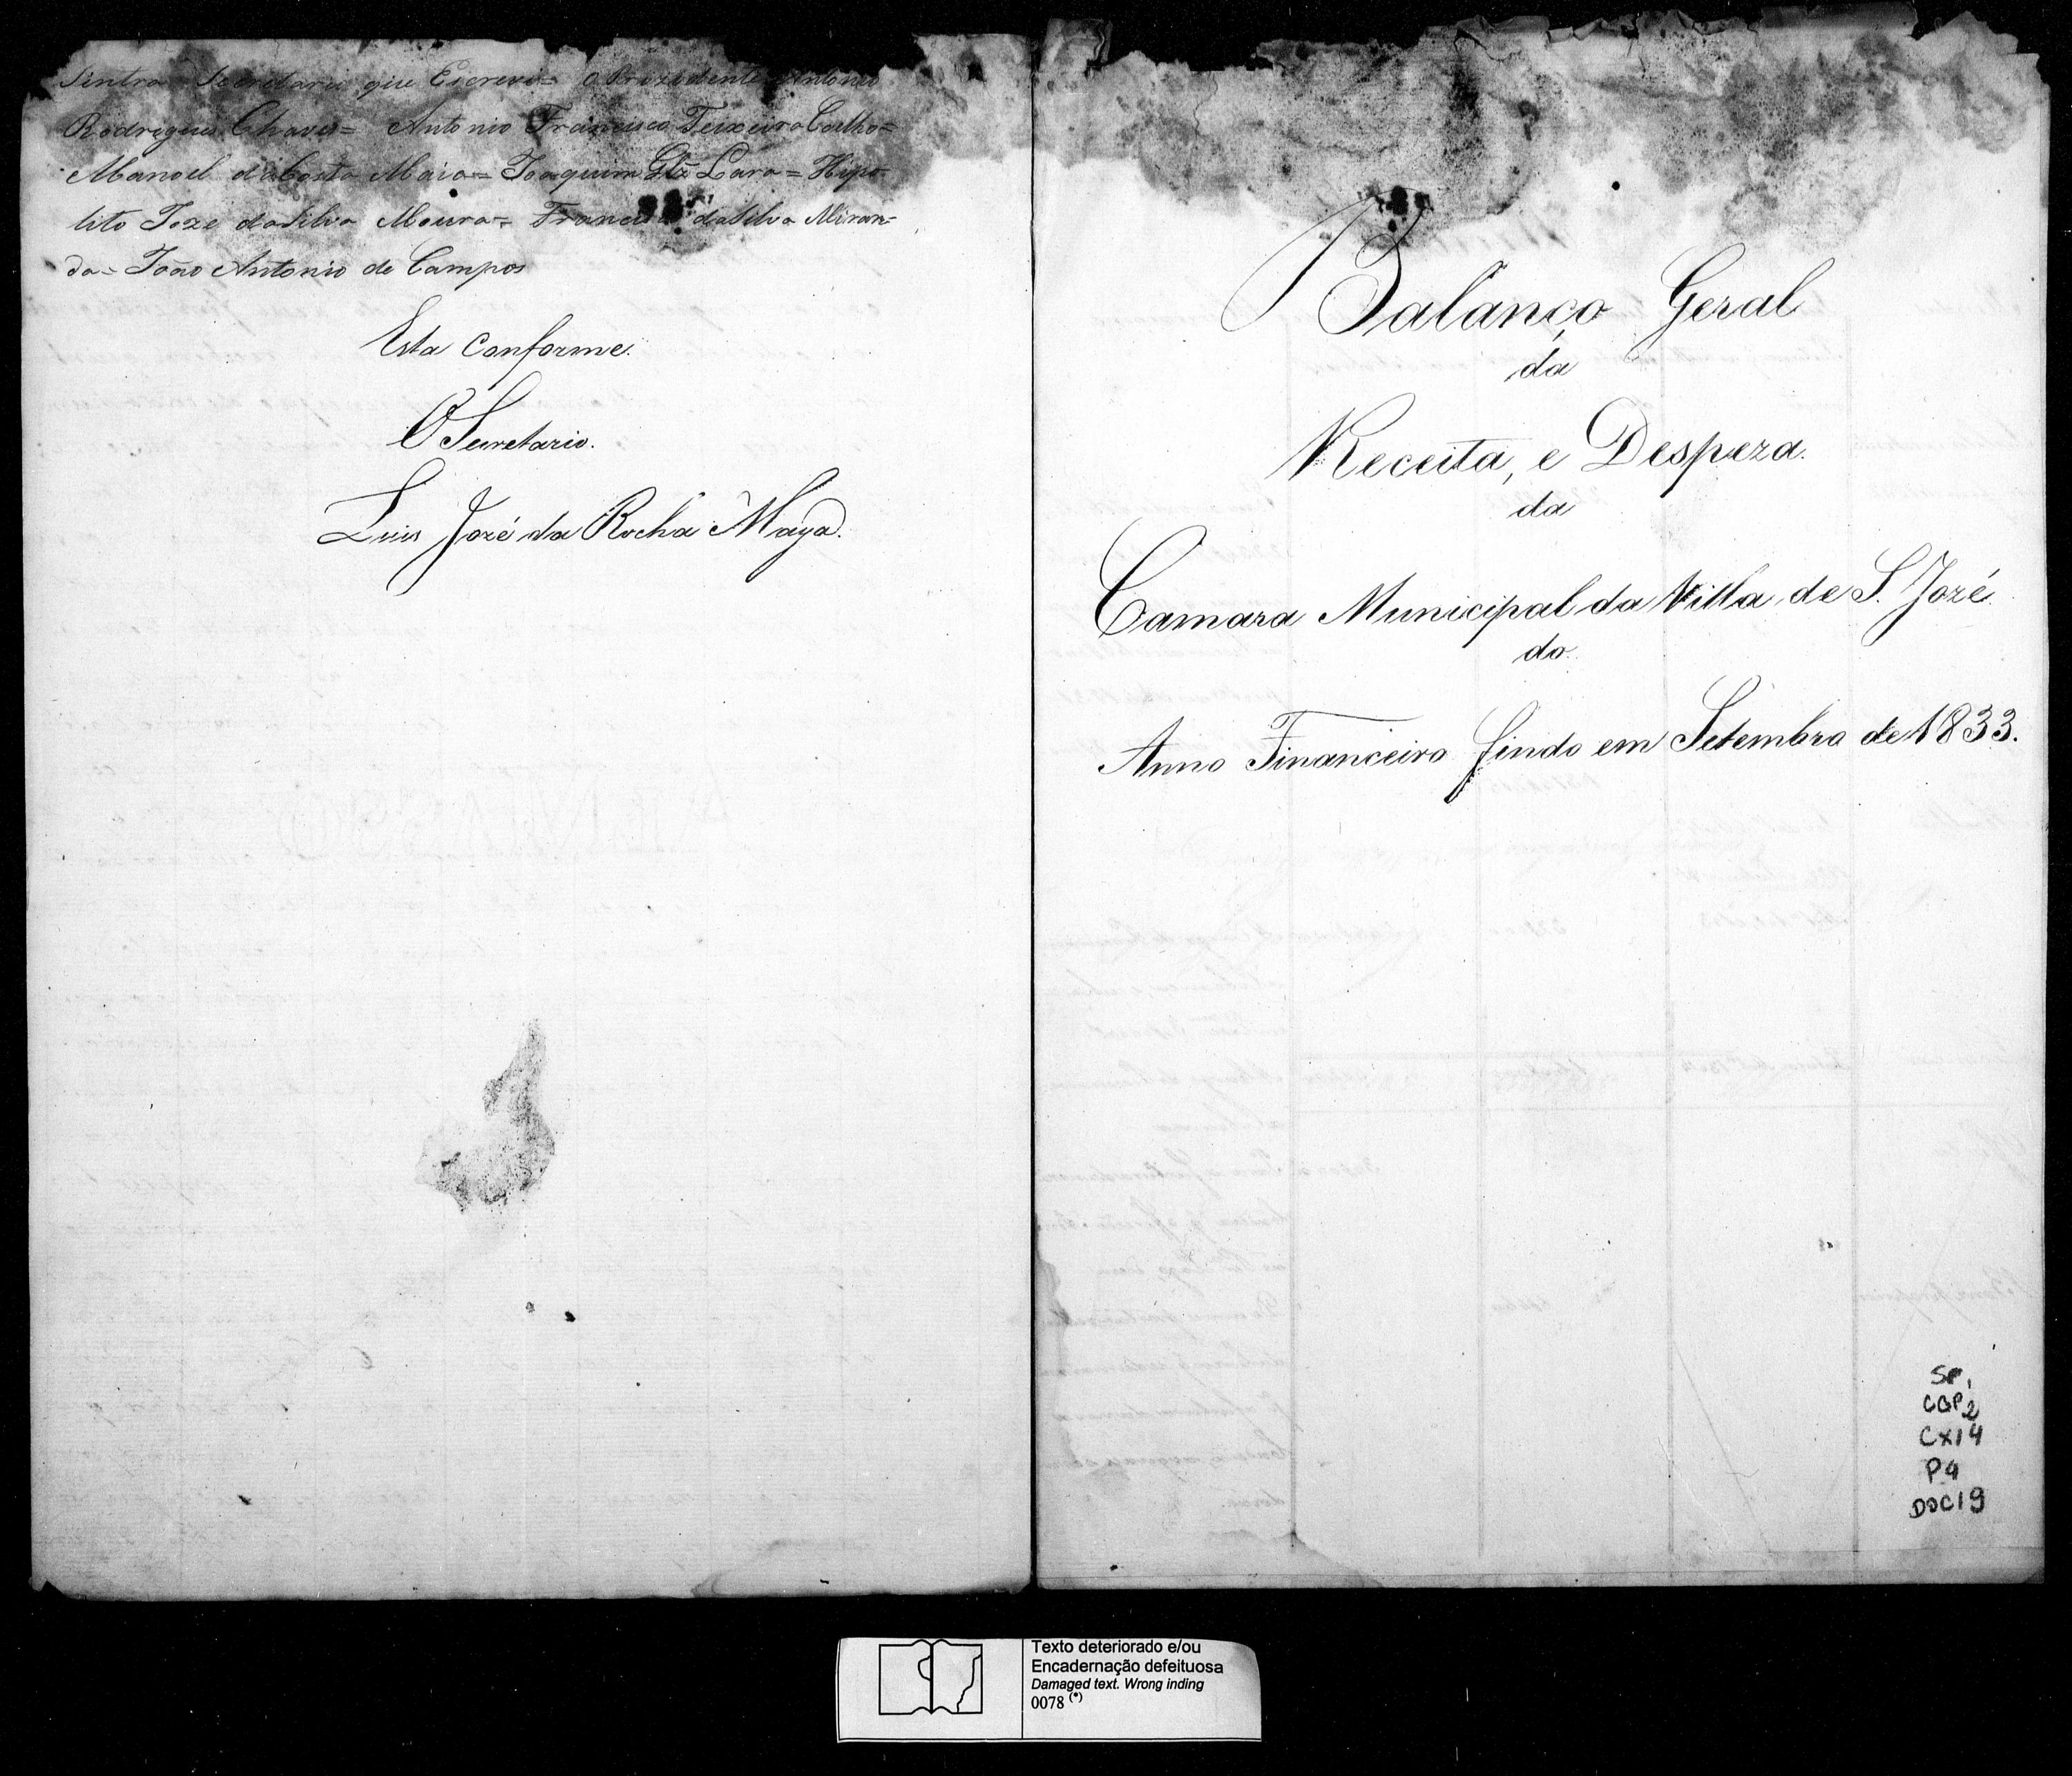 Sintra Secretario que Escrevi= O Prezidente Antonio
Rodrigues Chaves= Antonio Francisco Teixeira Coelho=
Manoel da Costa Maia= Joaquim Glz Lara= Hipo-
lito Joze da Silva Moura= Francisco da Silva Miran=
da= João Antonio de Campos
Esta Conforme.
O Secretario.
Luis Jozé da Rocha Maya.
Balanço Geral
da
Receita, e Despeza.
da
Camara Municipal da Villa de S. Jozé
do
Anno Financeiro findo em Setembro de 1833.
SP,
CGP2
CX14
P4
DOC19
Texto deteriorado e/ou
Encadernação defeituosa
Damaged text. Wrong inding
0078 (*)